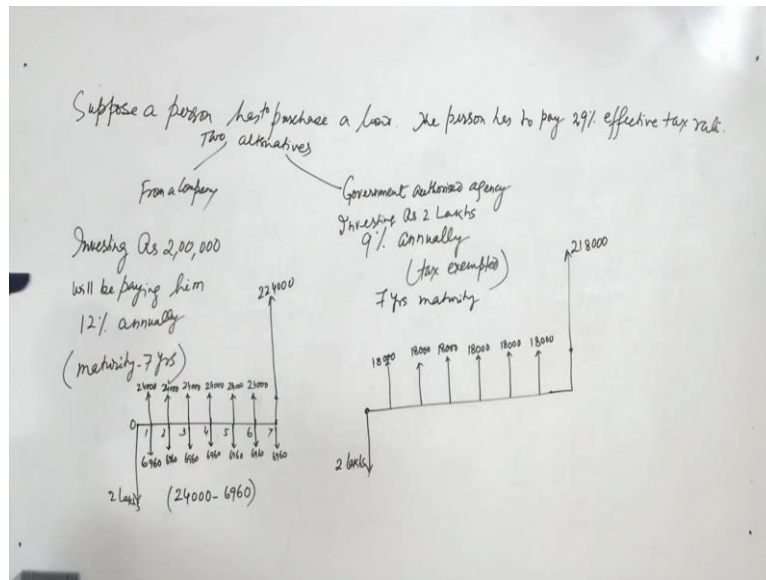 Suppose a person has to purchase a loan. The person has to pay 29% effective tax rate.
Two alternatives
From a Company
Investing Rs 2,00,000
will be paying him
12% annually
(maturity-7 yrs)
224000
24000 24000 24000 24000 24000 24000
0 1 2 3 4 5 6 7
6960 6960 6960 6960 6960 6960 6960
2 Lakhs
(24000-6960)
Government authorised agency
Investing Rs 2 Lakhs
9% annually
(tax exempted)
7 yrs maturity
218000
18000 18000 18000 18000 18000 18000
2 lakhs